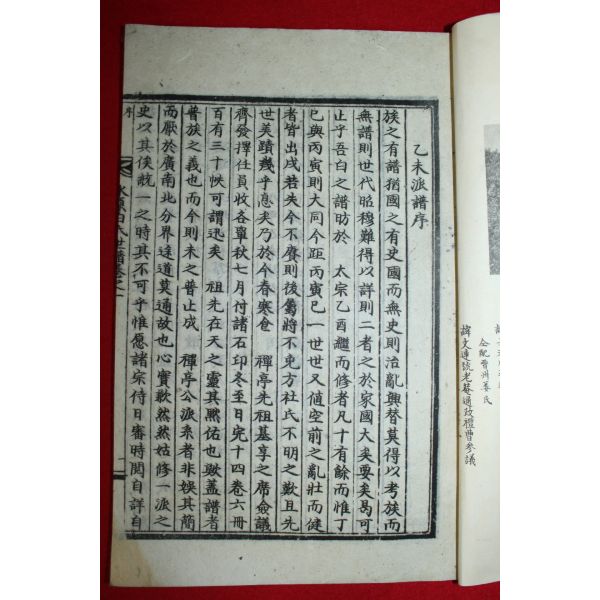 諱文連號老菴通政禮曹參議
仝配曺州姜氏
乙未派譜序
族之有譜猶國之有史國而無史則治亂興替莫得以考族而
無譜則世代昭穆難得以詳則二者之於家國大矣要矣曷可
止乎吾白之譜昉於 太宗乙酉繼而修者凡十有餘而惟丁
巳與丙寅則大同今距丙寅已一世世又値空前之亂壯而健
者皆出戌若失今不賡則後屬將不免方社氏不明之歎且先
世美蹟幾乎息矣乃於今春寒食 禪亭先祖墓享之席僉議
齊發擇任員收各單秋七月付諸石印冬至日完十四卷六冊
百有三十帙可謂迅矣 祖先在天之靈其黙佑也歟蓋譜者
普族之義也而今則未之普止成 禪亭公派系者非娛其簡
而厭於廣南北分界途道莫通故也心實歉然然姑修一派之
史以其俟旣一之時其不可乎惟愿諸宗侍日審時閱自詳自
水原白氏世譜卷之一
序
一